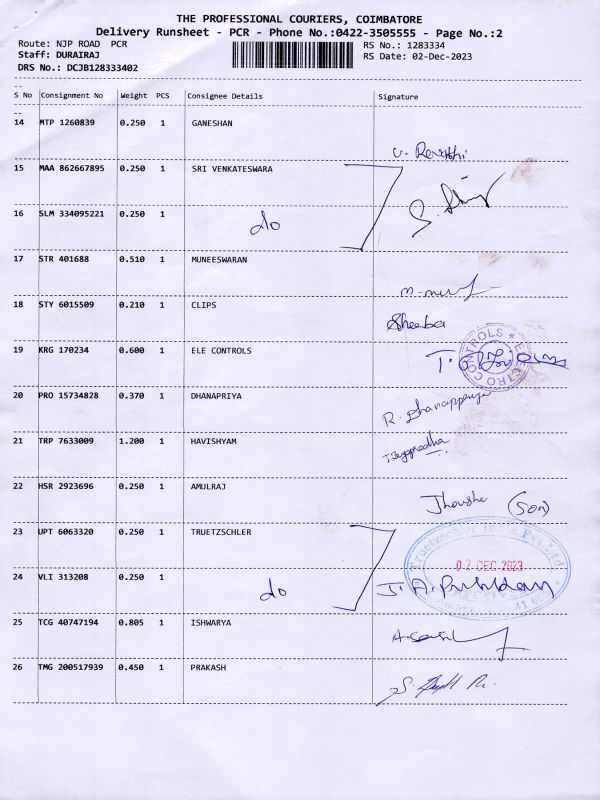 THE PROFESSIONAL COURIERS, COIMBATORE
Delivery Runsheet - PCR - Phone No.:0422-3505555 - Page No.:2
Route: NJP ROAD PCR RS No.: 1283334
Staff: DURAIRAJ RS Date: 02-Dec-2023
DRS No.: DCJB128333402
S No Consignment No Weight PCS Consignee Details Signature
14 MTP 1260839 0.250 1 GANESHAN
15 MAA 862667895 0.250 1 SRI VENKATESWARA
16 SLM 334095221 0.250 1 do
17 STR 401688 0.510 1 MUNEESWARAN
18 STY 6015509 0.210 1 CLIPS Sheeba
19 KRG 170234 0.600 1 ELE CONTROLS ELECTRO CONTROLS
20 PRO 15734828 0.370 1 DHANAPRIYA
21 TRP 7633009 1.200 1 HAVISHYAM
22 HSR 2923696 0.250 1 AMULRAJ (Son)
23 UPT 6063320 0.250 1 TRUETZSCHLER 02 DEC 2023
24 VLI 313208 0.250 1 do
25 TCG 40747194 0.805 1 ISHWARYA
26 TMG 200517939 0.450 1 PRAKASH